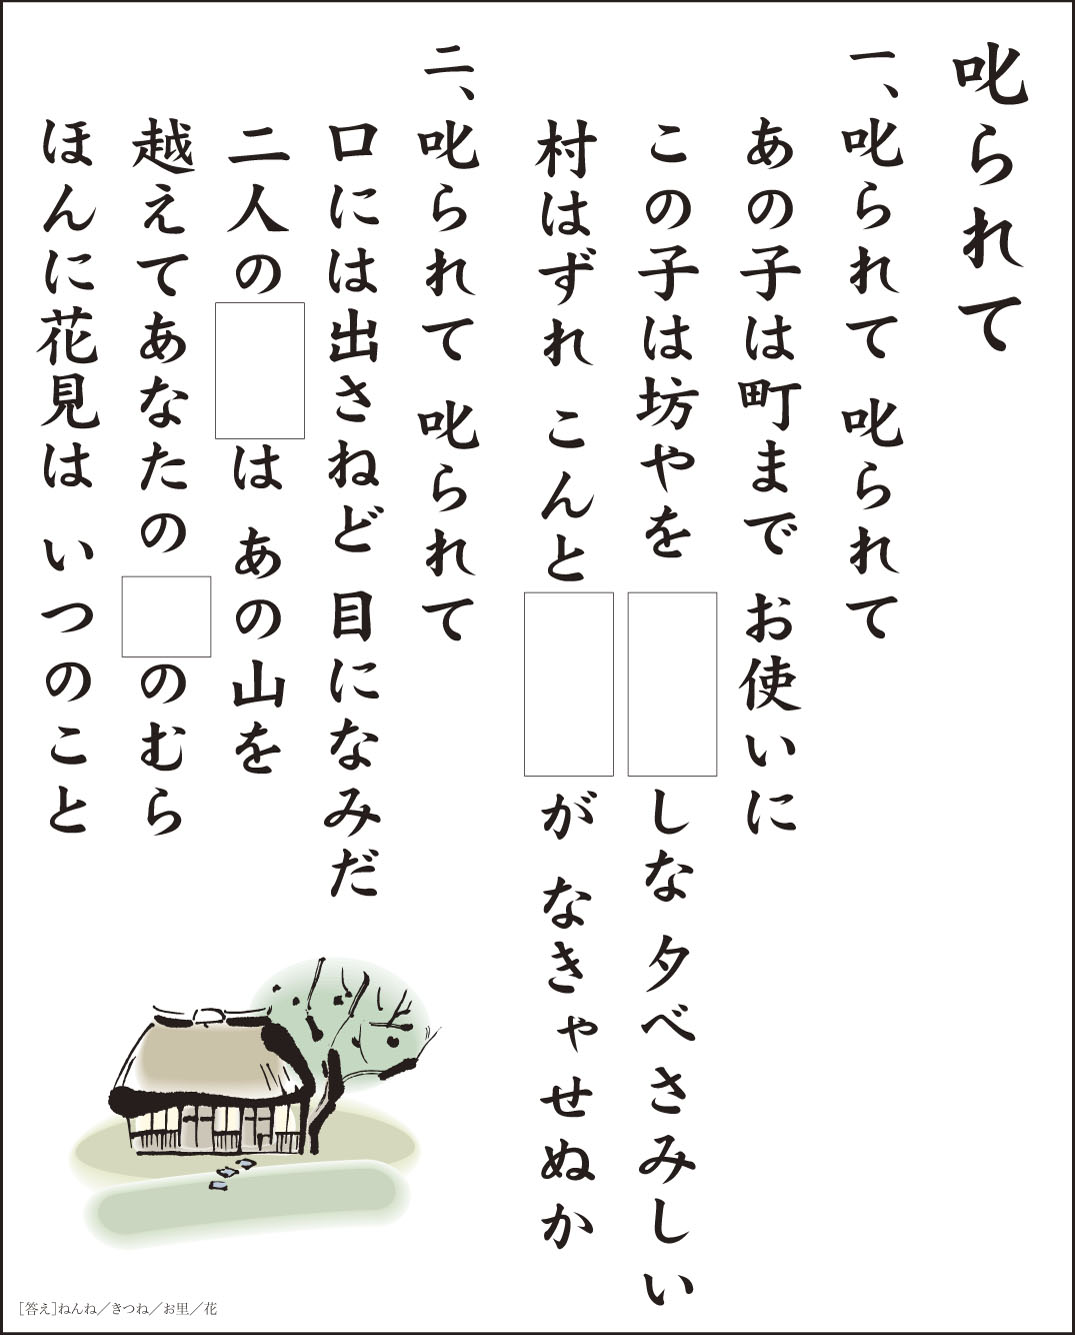 叱られて
一、叱られて 叱られて
あの子は町まで お使いに
この子は坊やを しな 夕べさみしい
村はずれ こんと が なきゃせぬか
二、叱られて 叱られて
口には出さねど 目になみだ
二人の は あの山を
越えてあなたの のむら
ほんに花見は いつのこと
[答え]ねんね／きつね／お里／花